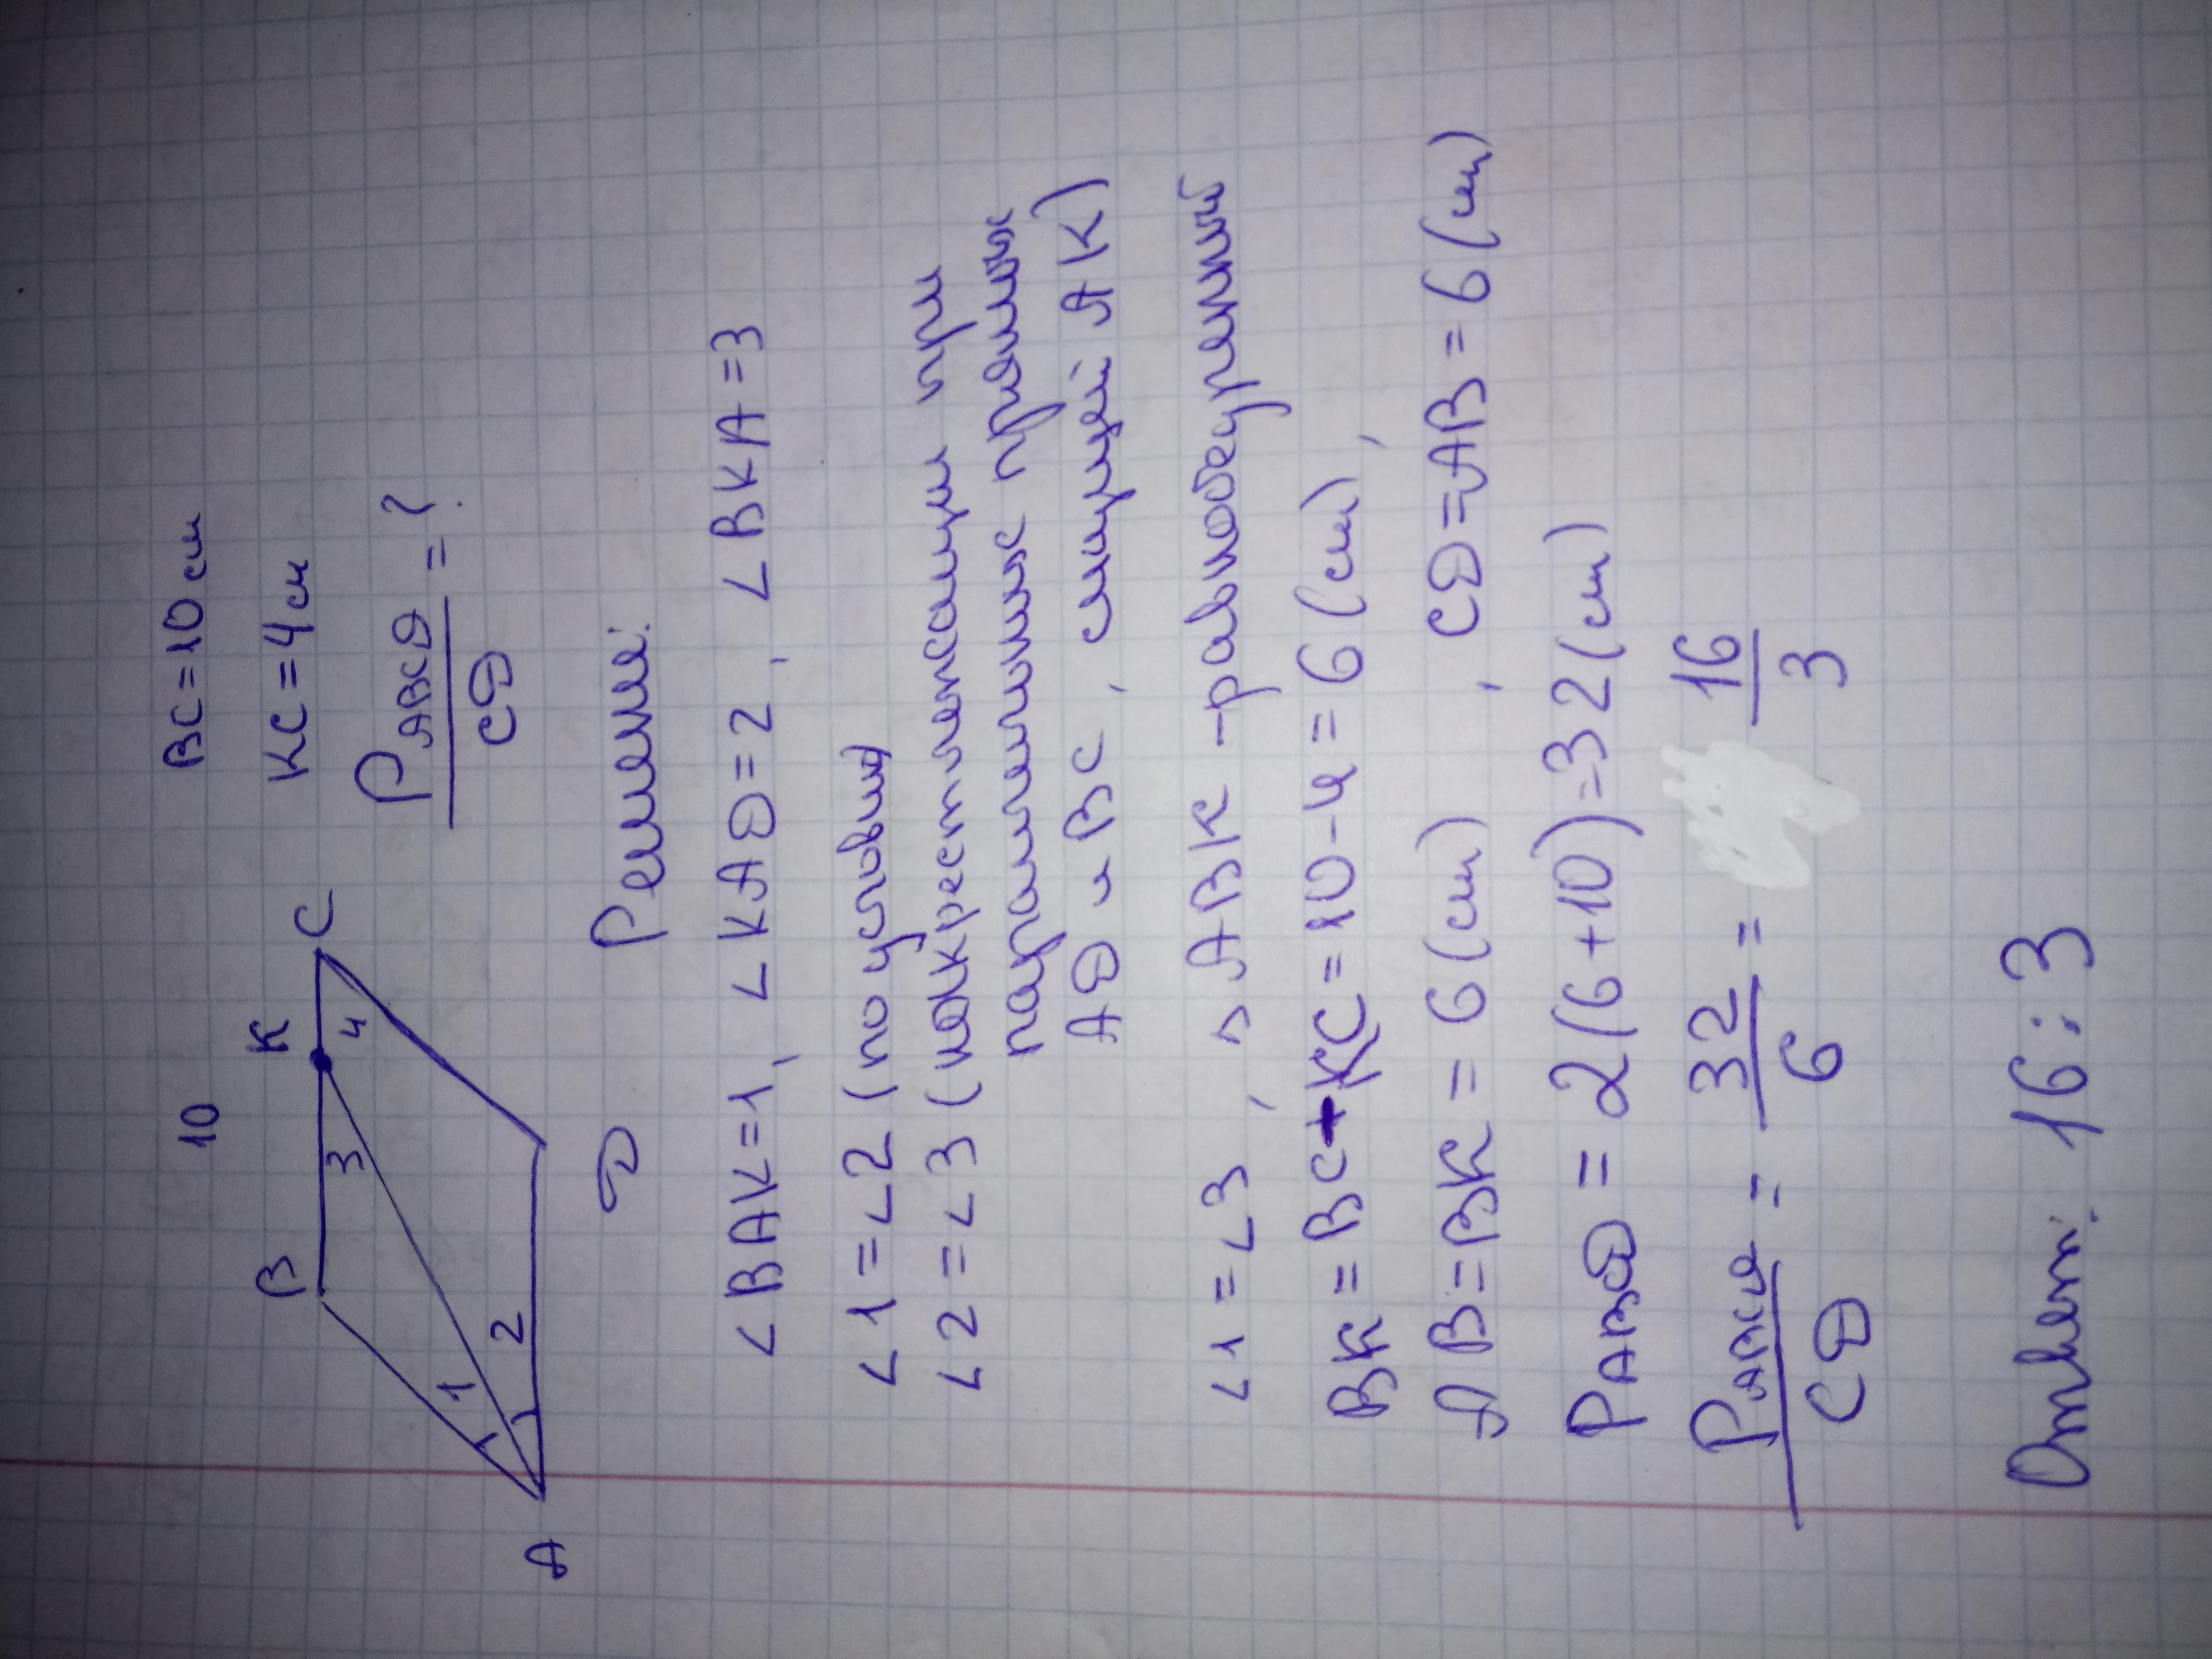 BC = 10 см
10
KC = 4 см
B K C
P ABCD / CD = ?
3 4
1
2
A D
Решение:
∠BAK = 1, ∠KAD = 2, ∠BKA = 3
∠1 = ∠2 (по условию)
∠2 = ∠3 (накрест лежащи при
параллельных прямых
AD и BC, секущей AK)
∠1 = ∠3, △ABK - равнобедренный
BK = BC + KC = 10 - 4 = 6 (см),
AB = BK = 6 (см), CD = AB = 6 (см)
P ABCD = 2 (6 + 10) = 32 (см)
P ABCD / CD = 32 / 6 = 16 / 3
Ответ: 16 : 3